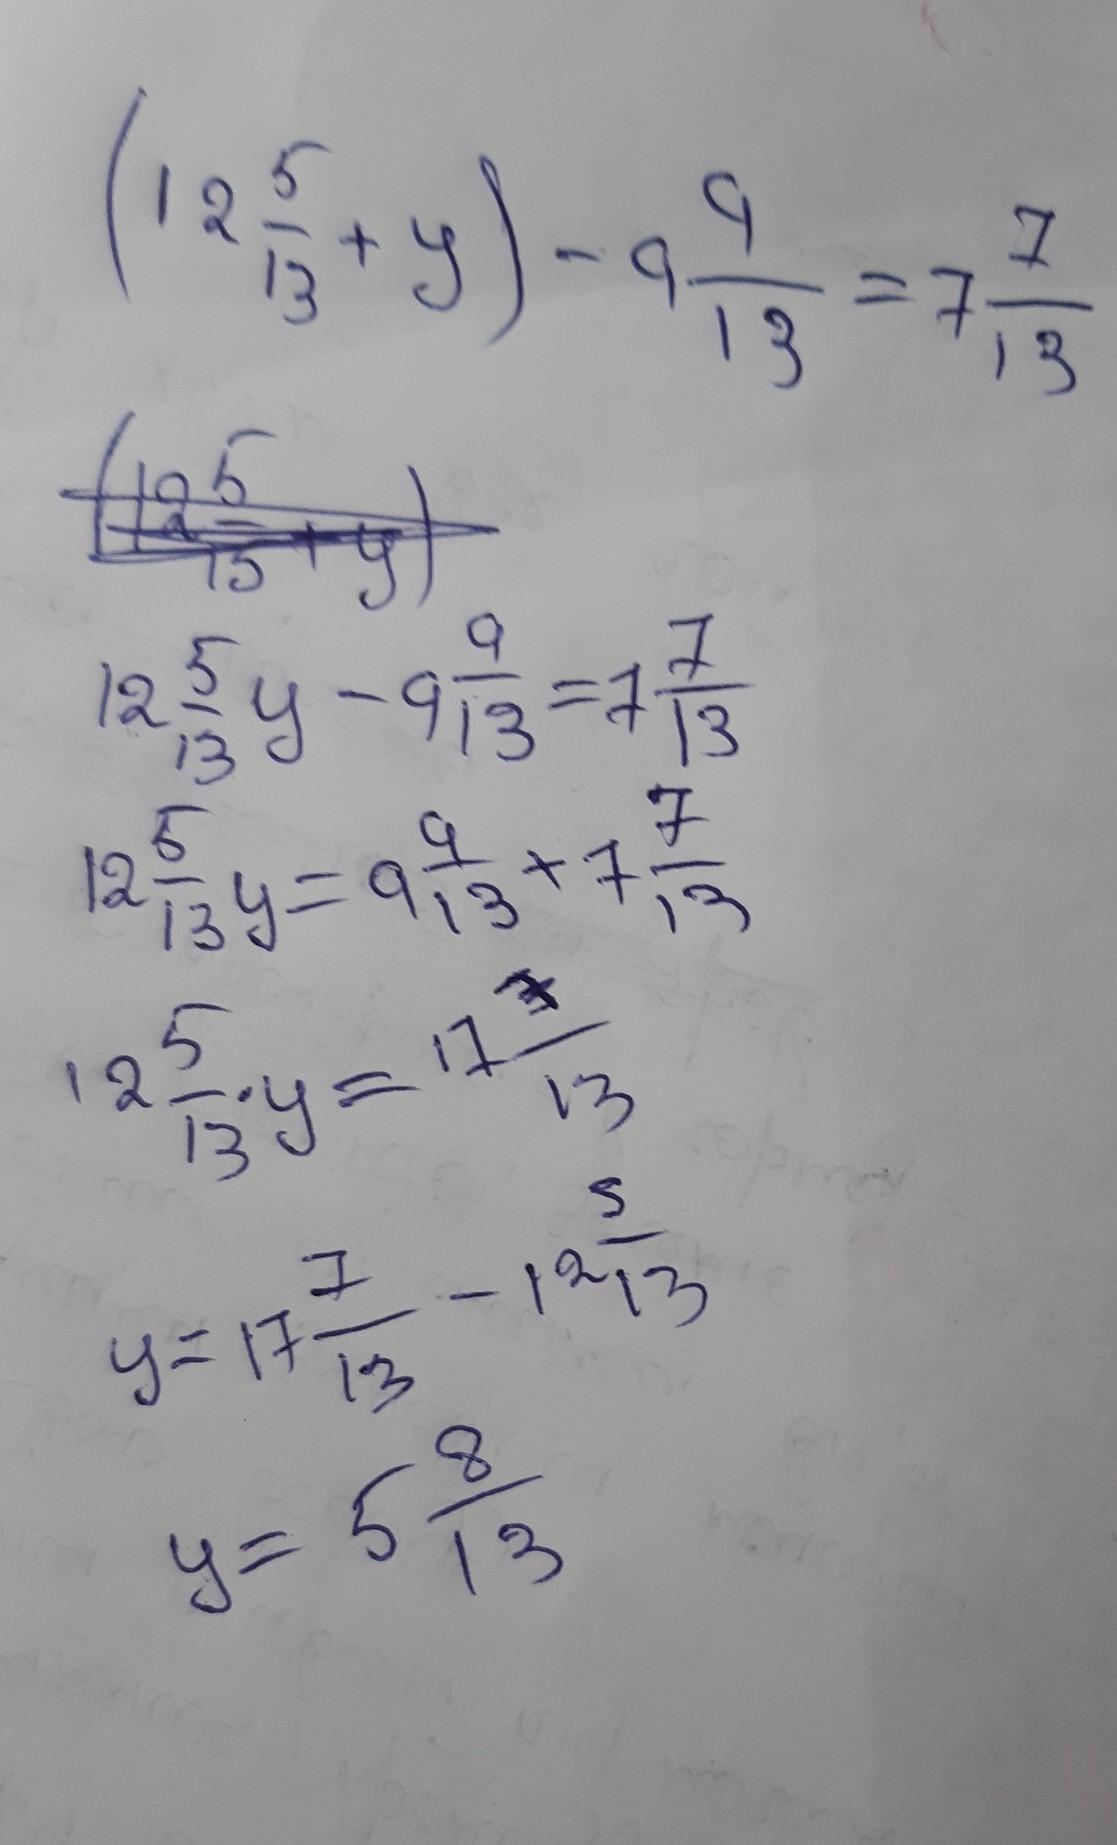 (12 5/13 + y) - 9 9/13 = 7 7/13
(12 5/13 + y)
12 5/13 y - 9 9/13 = 7 7/13
12 5/13 y = 9 9/13 + 7 7/13
12 5/13 · y = 17 /13
y = 17 7/13 - 12 5/13
y = 5 8/13